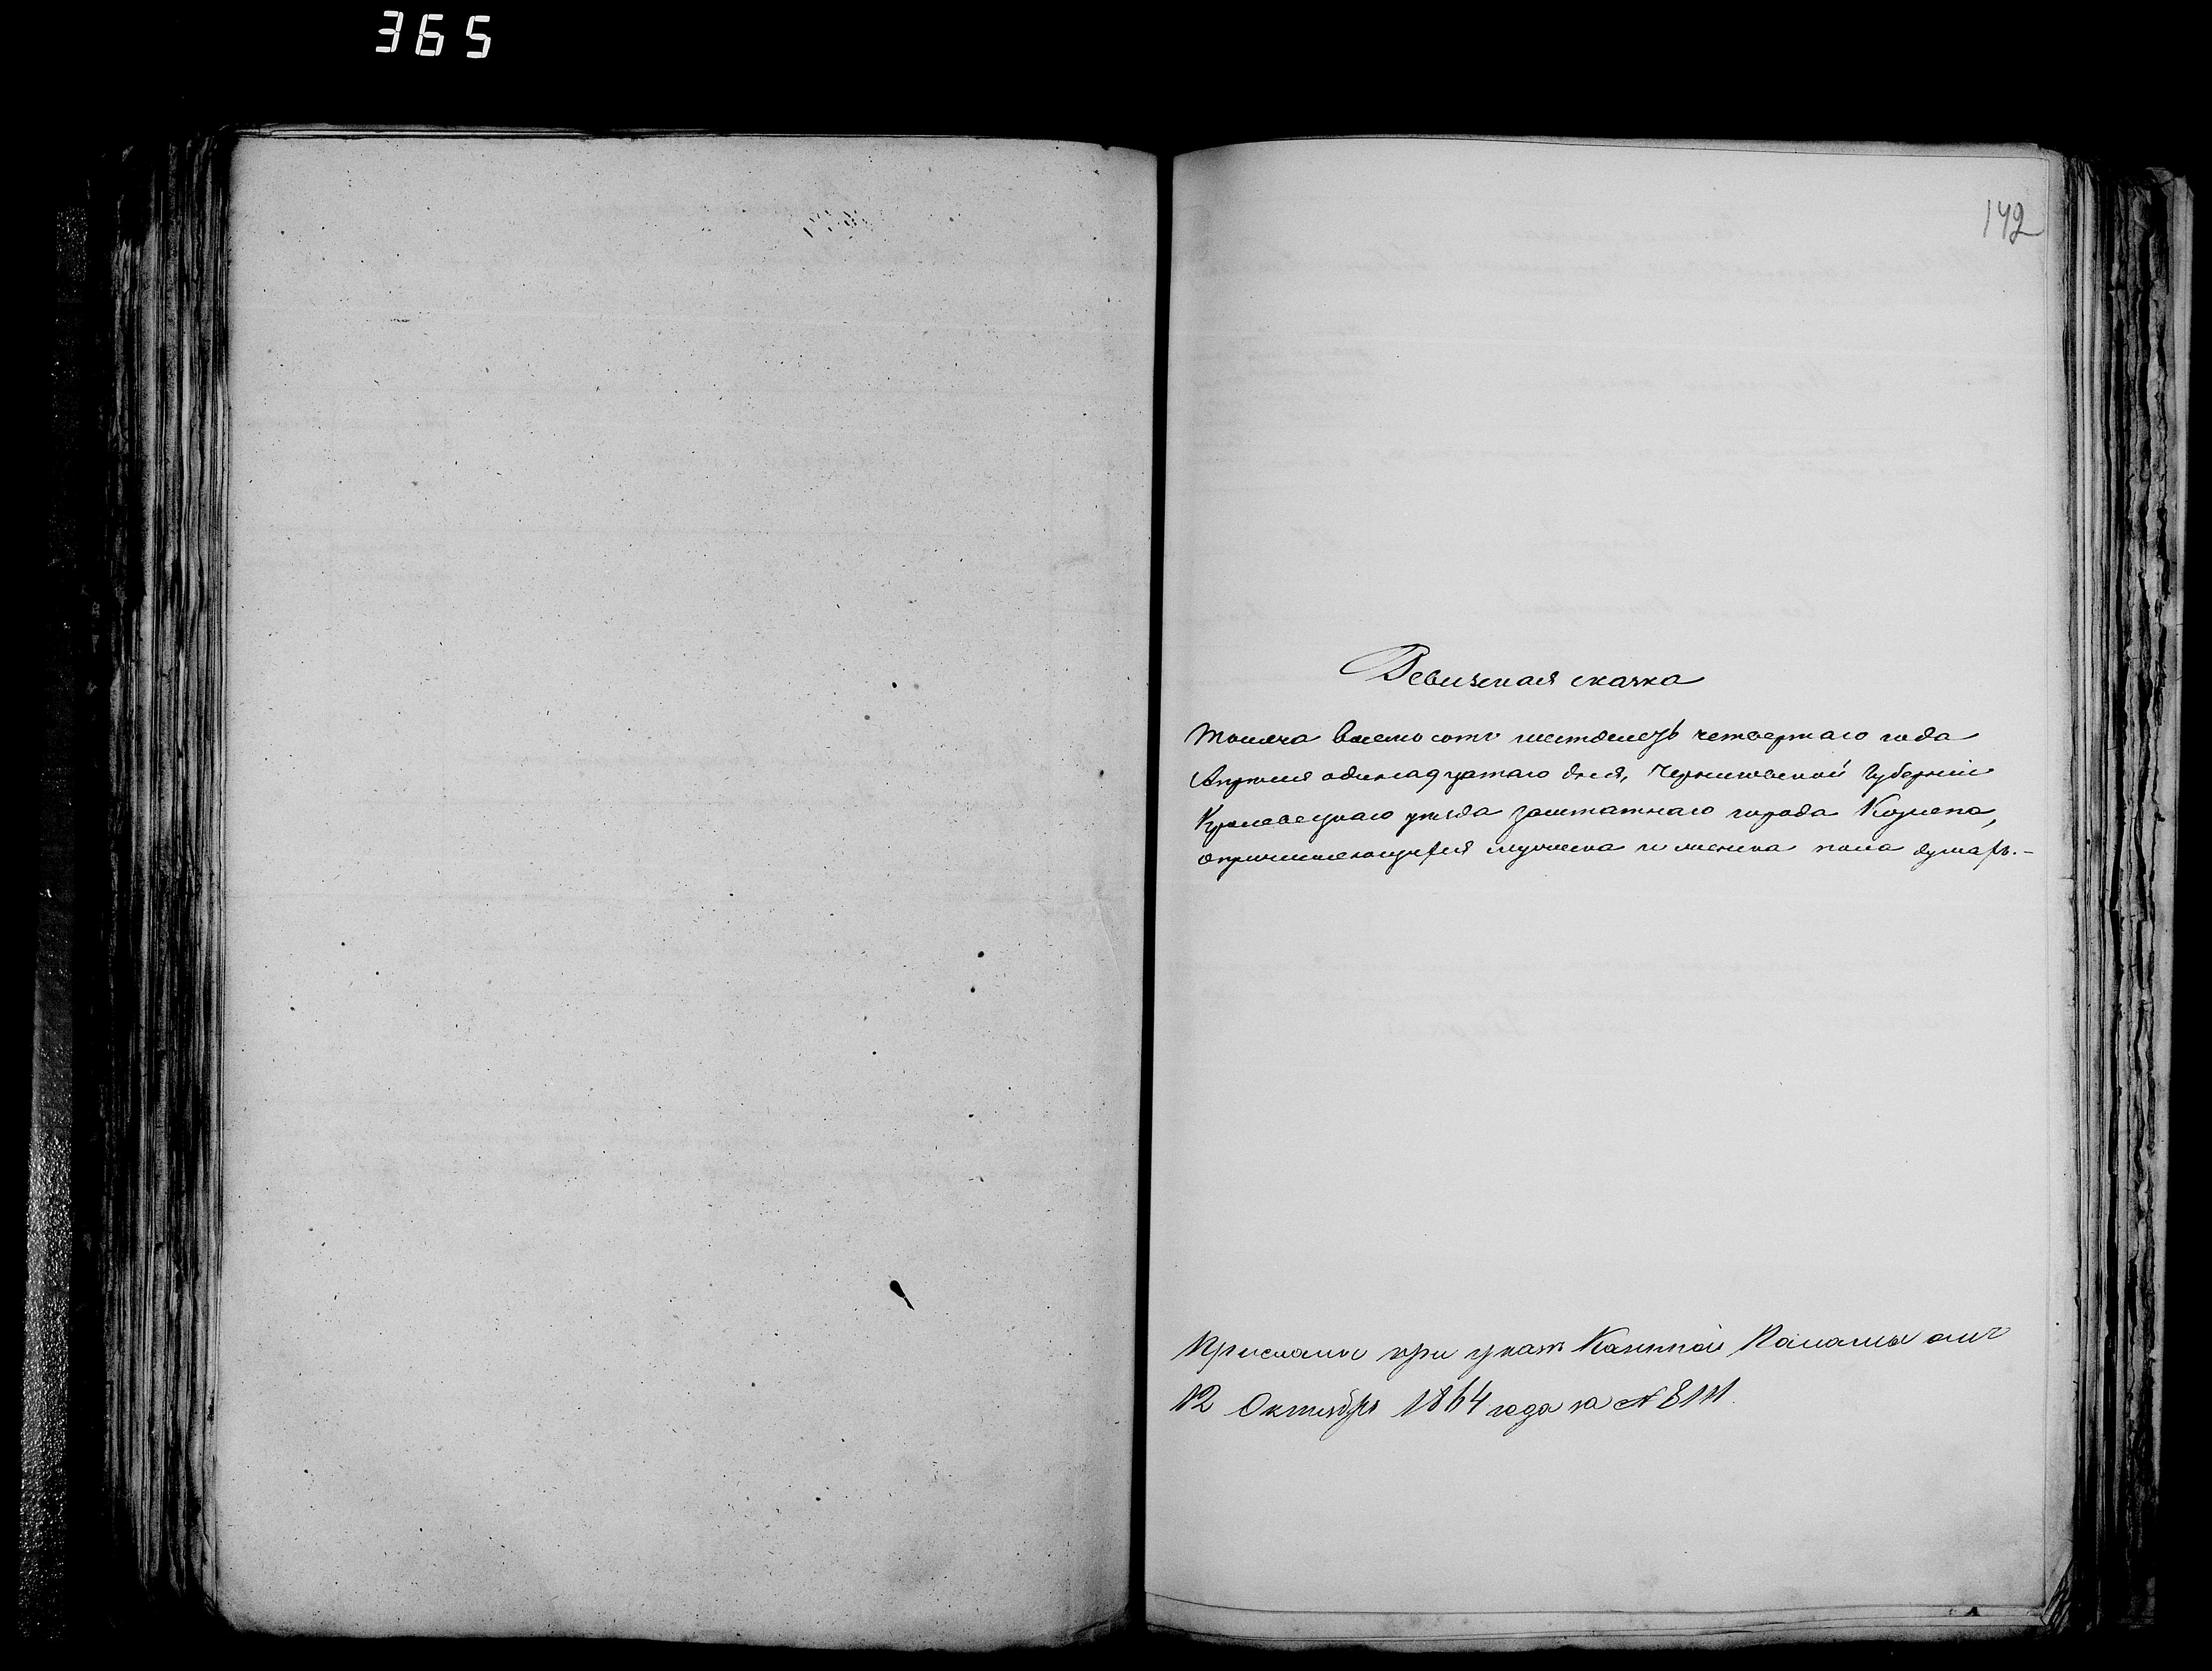 365
142
Ревизская сказка
Тысяча восемьсотъ шестьдесятъ четвертаго года
Апрѣля одинадцатаго дня, Черниговской Губерніи
Кролевецкаго уѣзда заштатнаго города Коропа,
о причисляющихся мужеска и женска пола душахъ.-
Прислана при указѣ Казенной Палаты отъ
12 Октября 1864 года за №